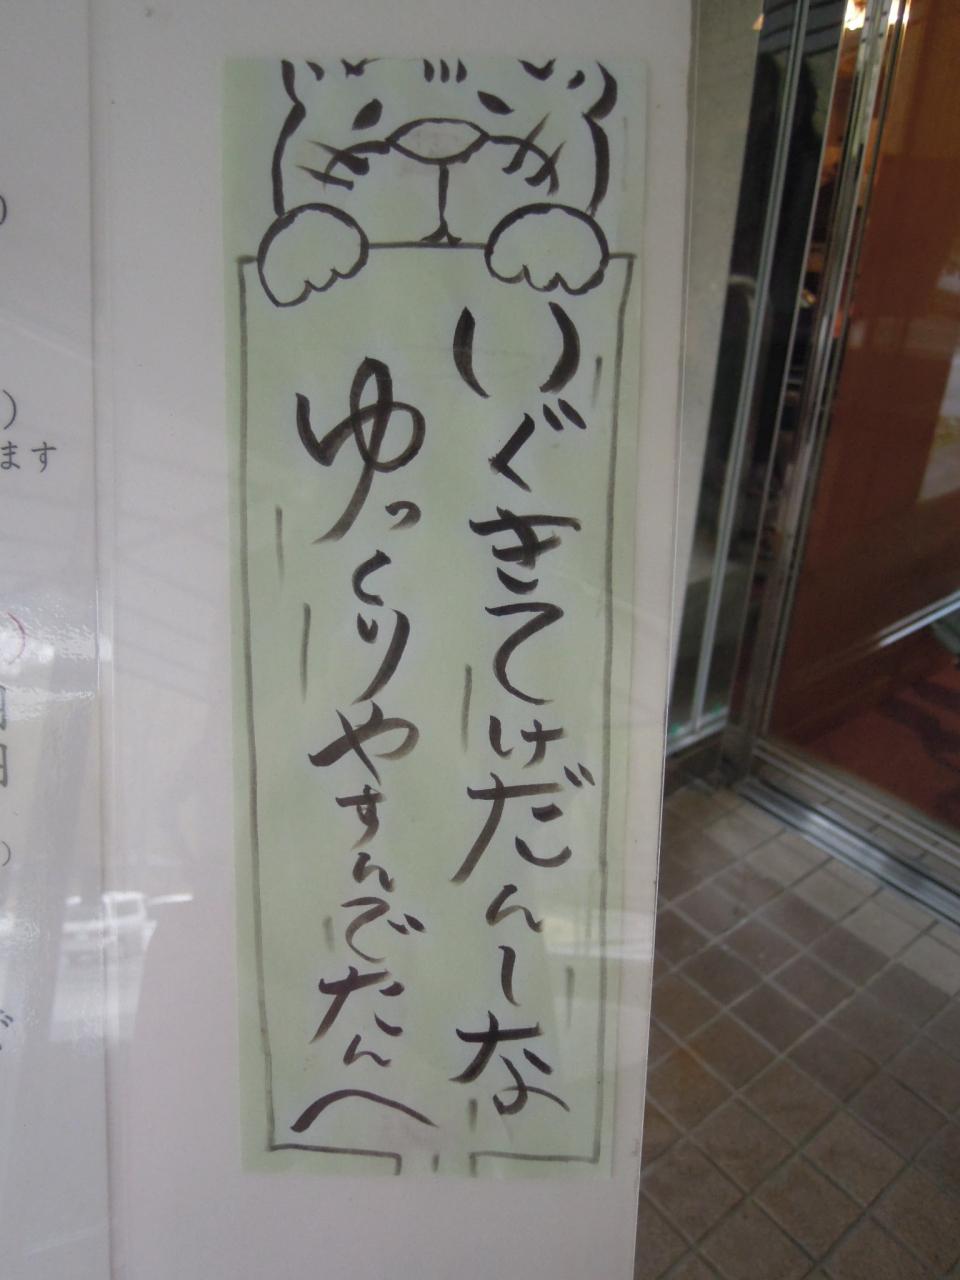 いぐきてけだんーな
ゆっくりやすんでたんへ
ます